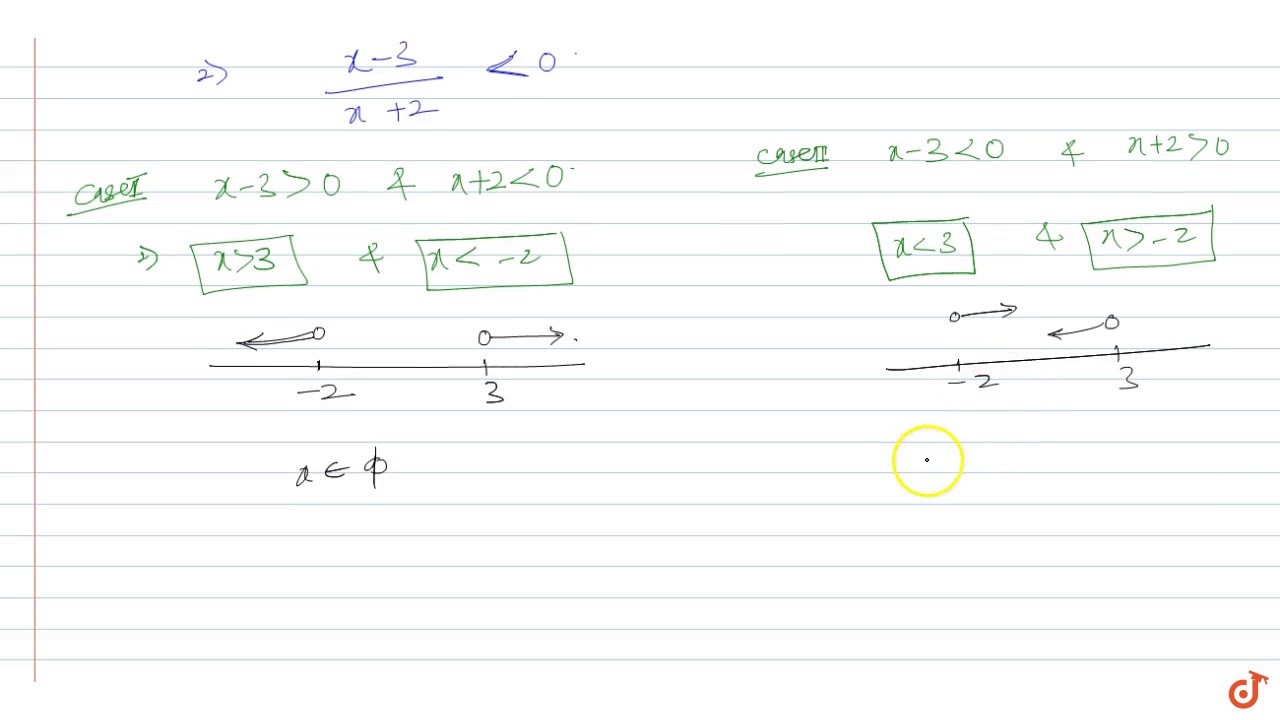 2) x-3 / x+2 < 0
Case I x-3>0 & x+2<0
2) x>3 & x< -2
-2 3
x ∈ ϕ
Case II x-3<0 & x+2>0
x<3 & x>-2
-2 3